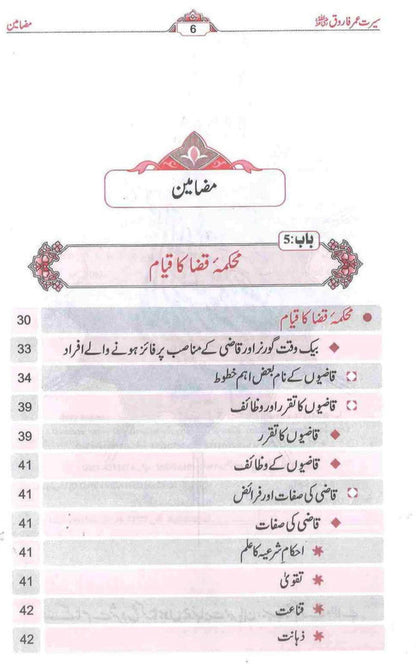 سیرت عمر فاروق رضی اللہ عنہ
6
مضامین
مضامین
باب: 5
محکمۂ قضا کا قیام
محکمۂ قضا کا قیام 30
بیک وقت گورنر اور قاضی کے مناصب پر فائز ہونے والے افراد 33
قاضیوں کے نام بعض اہم خطوط 34
قاضیوں کا تقرر اور وظائف 39
قاضیوں کا تقرر 39
قاضیوں کے وظائف 41
قاضی کی صفات اور فرائض 41
قاضی کی صفات 41
احکامِ شرعیہ کا علم 41
تقویٰ 41
قناعت 42
ذہانت 42